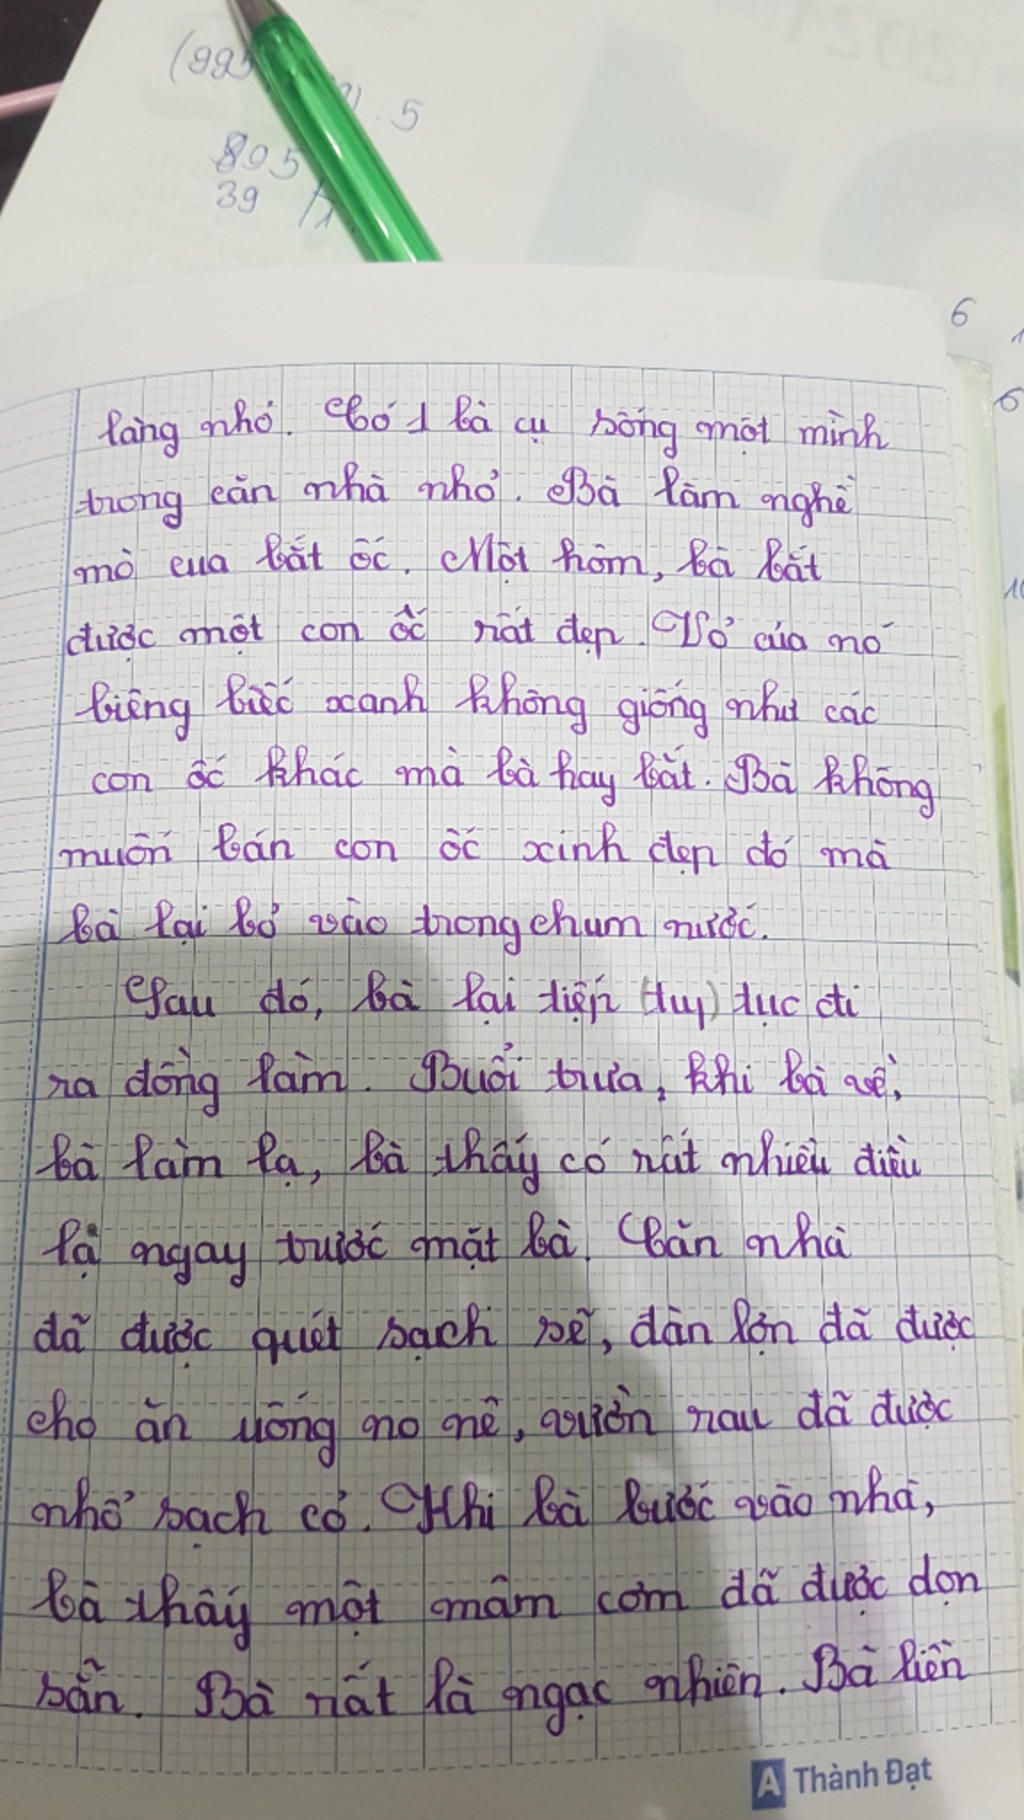 (995
) . 5
805
39
6
làng nhỏ. Có 1 bà cụ sống một mình
trong căn nhà nhỏ. Bà làm nghề
mò cua bắt ốc. Một hôm, bà bắt
được một con ốc rất đẹp. Vỏ của nó
biêng biếc xanh không giống như các
con ốc khác mà bà hay bắt. Bà không
muốn bán con ốc xinh đẹp đó mà
bà lại bỏ vào trong chum nước.
Sau đó, bà lại tiếp (tuy) tục đi
ra đồng làm. Buổi trưa, khi bà về,
bà làm lạ, bà thấy có rất nhiều điều
lạ ngay trước mặt bà. Căn nhà
đã được quét sạch sẽ, đàn lợn đã được
cho ăn uống no nê, vườn rau đã được
nhổ sạch cỏ. Khi bà bước vào nhà,
bà thấy một mâm cơm đã được dọn
sẵn. Bà rất là ngạc nhiên. Bà liền
A Thành Đạt